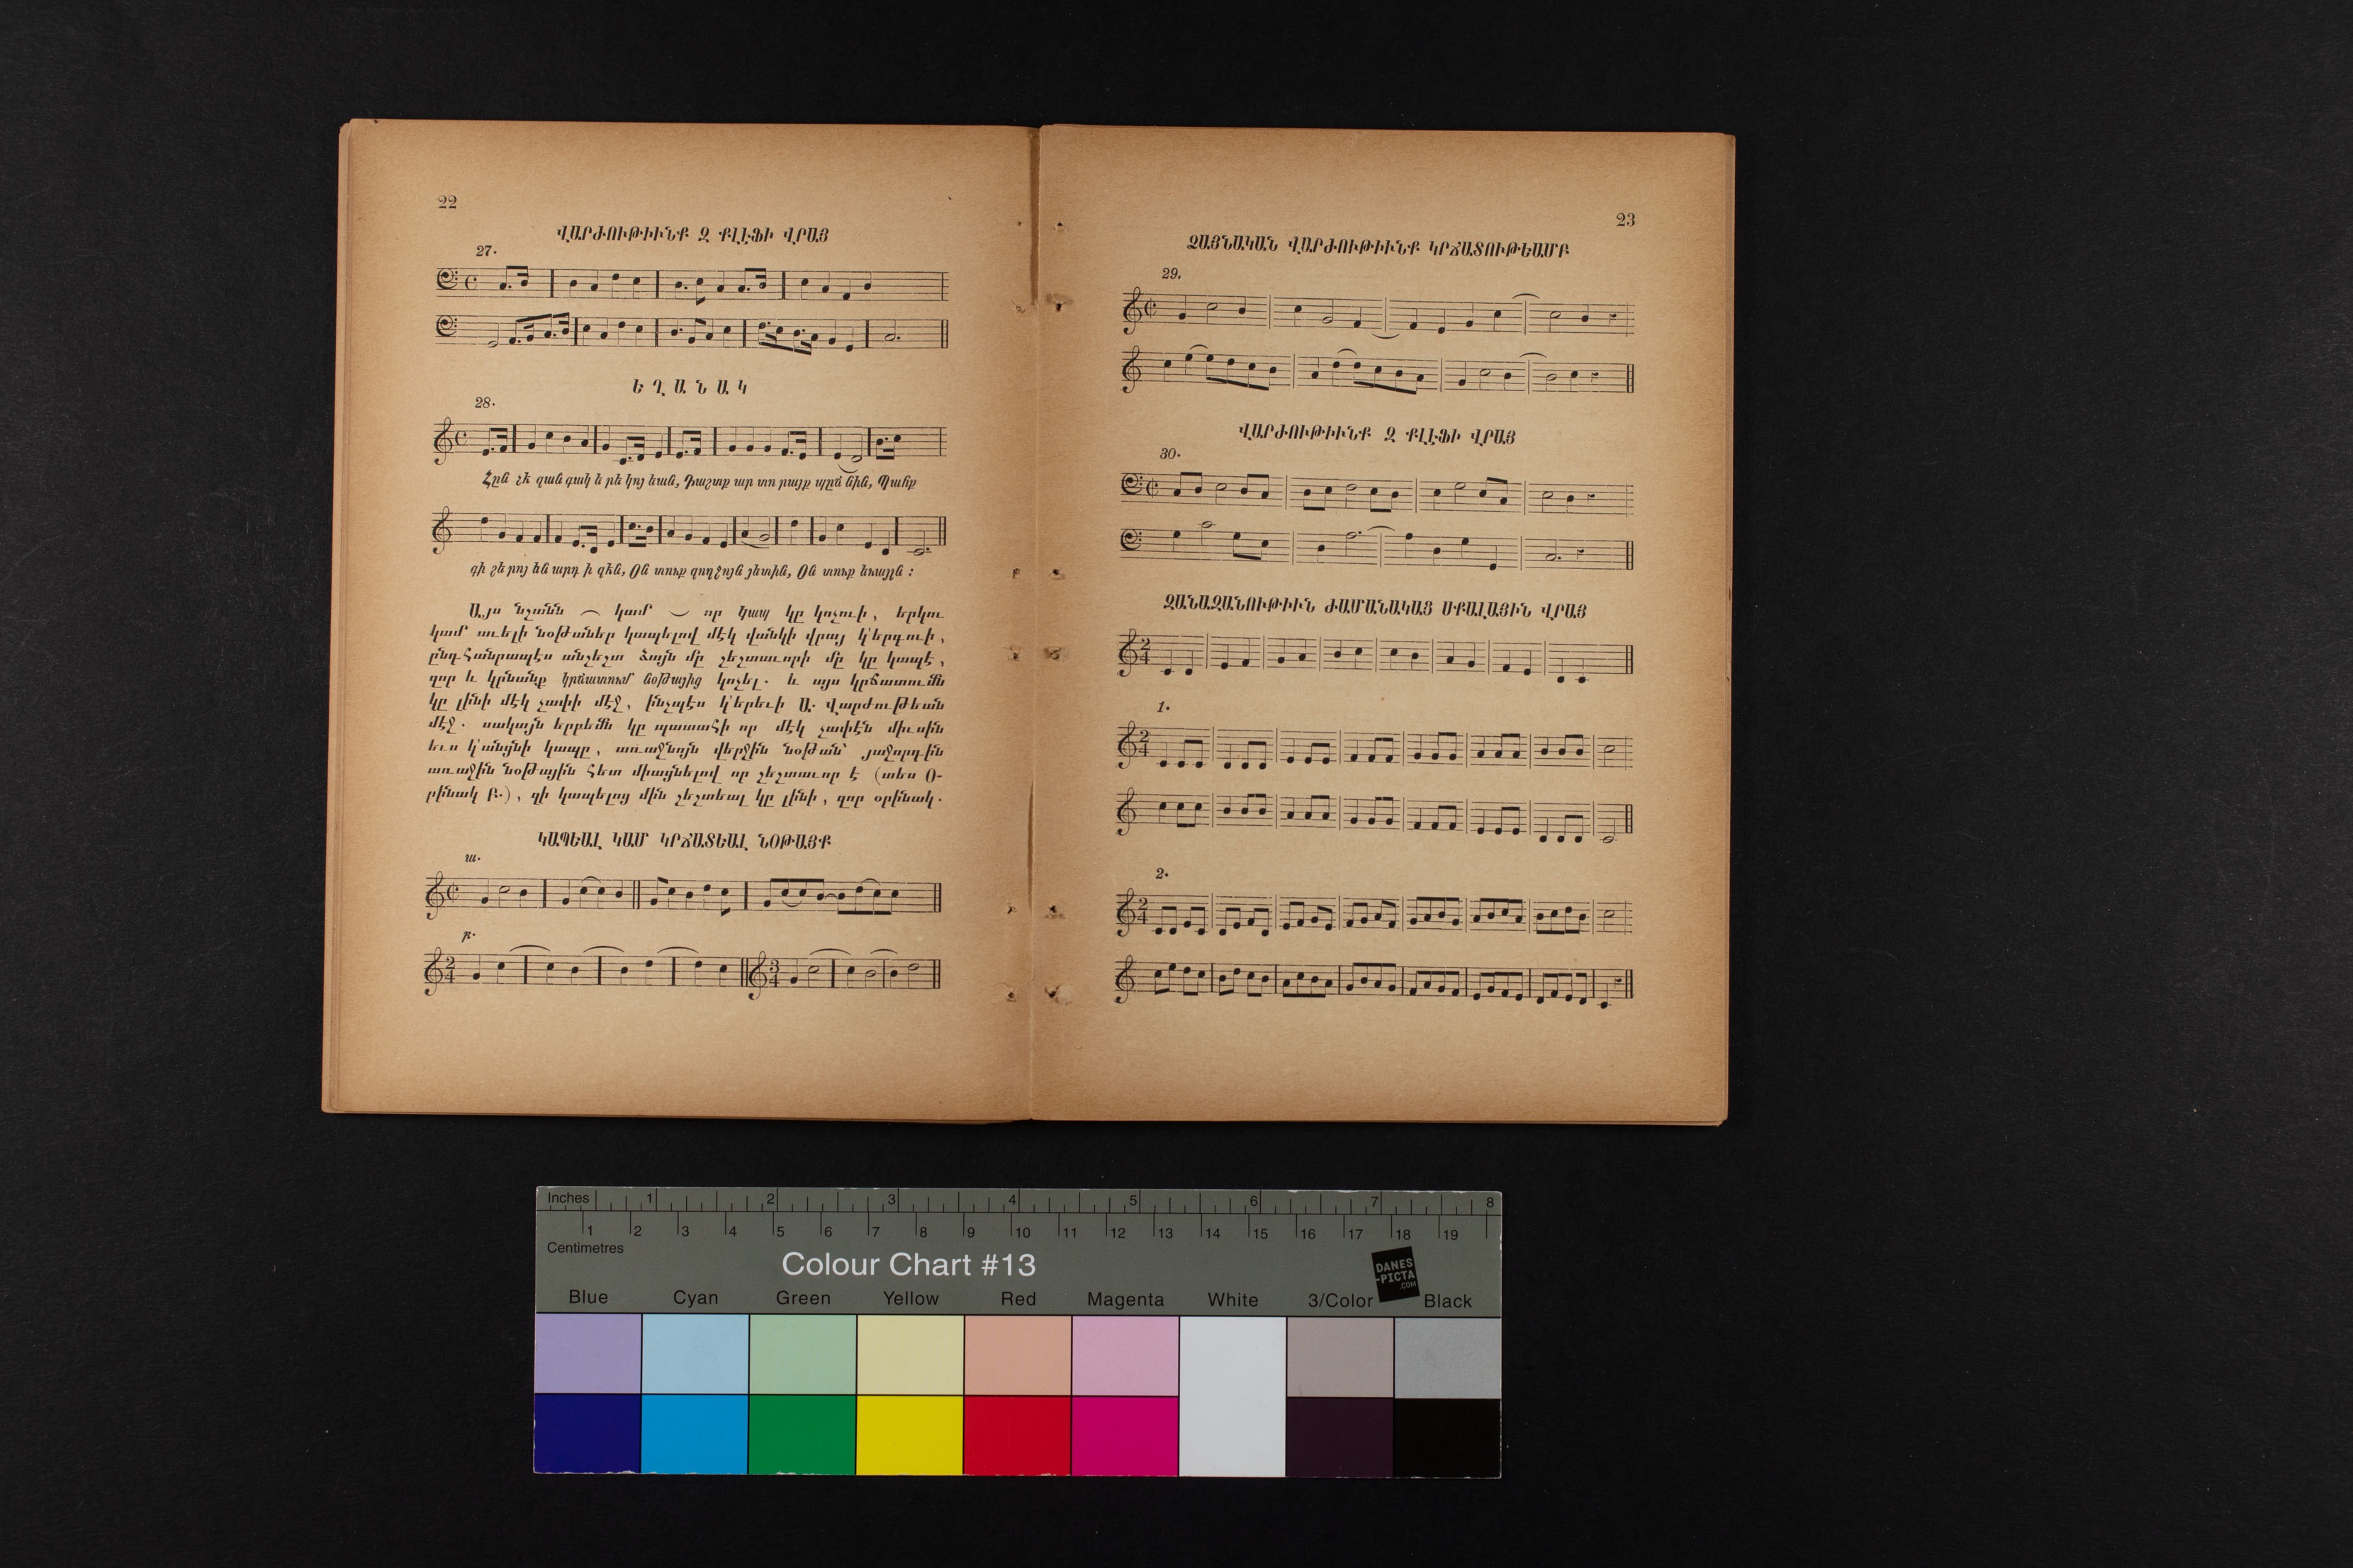 22
ՎԱՐԺՈՒԹԻՒՆՔ Զ ՔԼԷՖԻ ՎՐԱՅ
27.
ԵՂԱՆԱԿ
28.
Հըն չէ զան գակ ե րե կոյ եան, Դաշտք ար տո րայք պըճ նին, Պանք
գի շե րոյ են արդ ի զէն, Օն տուք զող ջոյն յետին, Օն տուք եւայլն :
Այս նշանն ⁀ կամ ‿ որ Կապ կը կոչուի, երկու
կամ աւելի նօթաներ կապելով մէկ վանկի վրայ կ՚երգուի,
ընդհանրապէս անշեշտ ձայն մը շեշտաւորի մը կը կապէ,
զոր և կրնանք կրճատում նօթայից կոչել. և այս կրճատումն
կը լինի մէկ չափի մէջ, ինչպէս կ՚երեւի Ա. Վարժութեան
մէջ. սակայն երբեմն կը պատահի որ մէկ չափէն միւսին
եւս կ՚անցնի կապը, առաջնոյն վերջին նօթան՝ յաջորդին
առաջին նօթային հետ միացնելով որ շեշտաւոր է (տես Օ-
րինակ Բ.), զի կապելոց մին շեշտեալ կը լինի, զոր օրինակ.
ԿԱՊԵԱԼ ԿԱՄ ԿՐՃԱՏԵԱԼ ՆՕԹԱՅՔ
ա.
բ.
23
ՁԱՅՆԱԿԱՆ ՎԱՐԺՈՒԹԻՒՆՔ ԿՐՃԱՏՈՒԹԵԱՄԲ
29.
ՎԱՐԺՈՒԹԻՒՆՔ Զ ՔԼԷՖԻ ՎՐԱՅ
30.
ԶԱՆԱԶԱՆՈՒԹԻՒՆ ԺԱՄԱՆԱԿԱՑ ՍՔԱԼԱՅԻՆ ՎՐԱՅ
1.
2.
Inches 1 2 3 4 5 6 7 8
1 2 3 4 5 6 7 8 9 10 11 12 13 14 15 16 17 18 19
Centimetres
Colour Chart #13
DANES
-PICTA
.COM
Blue Cyan Green Yellow Red Magenta White 3/Color Black